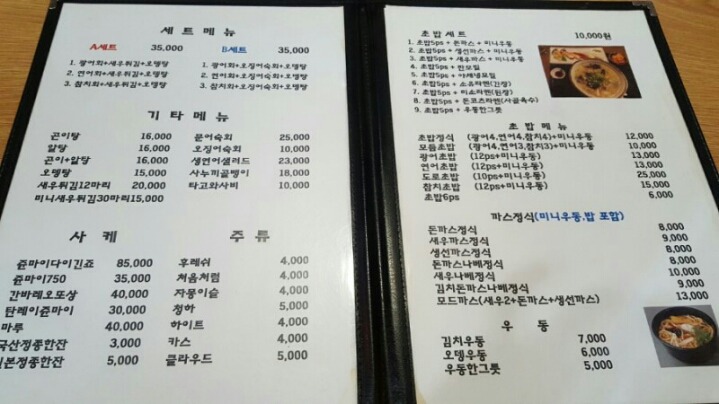 세트메뉴
A세트 35,000 B세트 35,000
1. 광어회+새우튀김+오뎅탕 1. 광어회+오징어숙회+오뎅탕
2. 연어회+새우튀김+오뎅탕 2. 연어회+오징어숙회+오뎅탕
3. 참치회+새우튀김+오뎅탕 3. 참치회+오징어숙회+오뎅탕
기타메뉴
곤이탕 16,000 문어숙회 25,000
알탕 16,000 오징어숙회 10,000
곤이+알탕 16,000 생연어샐러드 23,000
오뎅탕 15,000 사누끼골뱅이 18,000
새우튀김12마리 20,000 타고와사비 10,000
미니새우튀김30마리15,000
사케 주류
쥰마이다이긴죠 85,000 후레쉬 4,000
쥰마이750 35,000 처음처럼 4,000
간바레오또상 40,000 자몽이슬 4,000
탄레이쥰마이 30,000 청하 5,000
마루 40,000 하이트 4,000
국산정종한잔 3,000 카스 4,000
일본정종한잔 5,000 클라우드 5,000
초밥세트 10,000원
1. 초밥5ps + 돈까스 + 미니우동
2. 초밥5ps + 생선까스 + 미니우동
3. 초밥5ps + 새우까스 + 미니우동
4. 초밥5ps + 판모밀
5. 초밥5ps + 야채냉모밀
6. 초밥5ps + 소유라멘(간장)
7. 초밥5ps + 미소라멘(된장)
8. 초밥5ps + 돈코츠라멘(사골육수)
9. 초밥5ps + 우동한그릇
초밥메뉴
초밥정식 (광어4,연어4,참치4)+미니우동 12,000
모듬초밥 (광어4,연어3,참치3)+미니우동 10,000
광어초밥 (12ps+미니우동) 13,000
연어초밥 (12ps+미니우동) 13,000
도로초밥 (10ps+미니우동) 25,000
참치초밥 (12ps+미니우동) 15,000
초밥6ps 6,000
까스정식(미니우동,밥 포함)
돈까스정식 8,000
새우까스정식 9,000
생선까스정식 8,000
돈까스나베정식 9,000
새우나베정식 10,000
김치돈까스나베정식 9,000
모드까스(새우2+돈까스+생선까스) 13,000
우동
김치우동 7,000
오뎅우동 6,000
우동한그릇 5,000